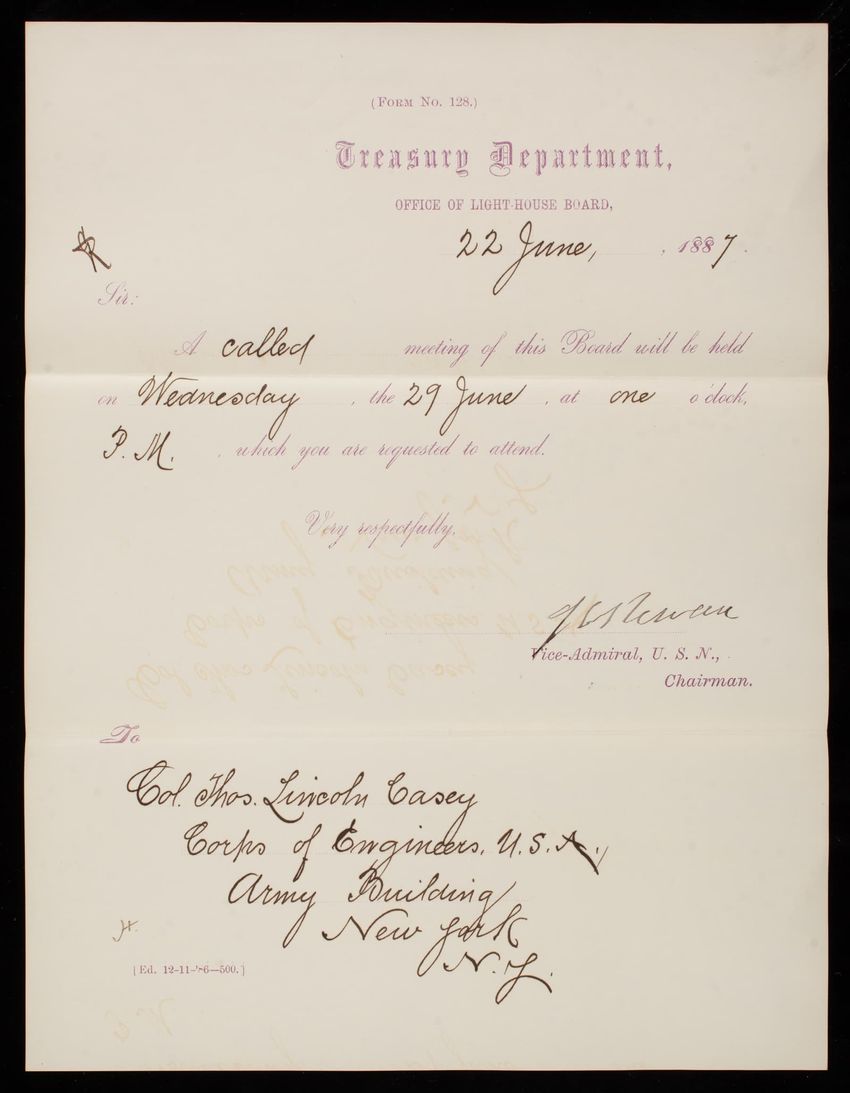 (Form No. 128.)
Treasury Department,
OFFICE OF LIGHT-HOUSE BOARD,
22 June, , 1887.
Sir:
A called meeting of this Board will be held
on Wednesday, the 29 June, at one o'clock,
P. M., which you are requested to attend.
Very respectfully,
Vice-Admiral, U. S. N.,
Chairman.
To
Col. Thos. Lincoln Casey
Corps of Engineers, U. S. A.,
Army Building
New York
N. Y.
[Ed. 12-11-'86—500.]